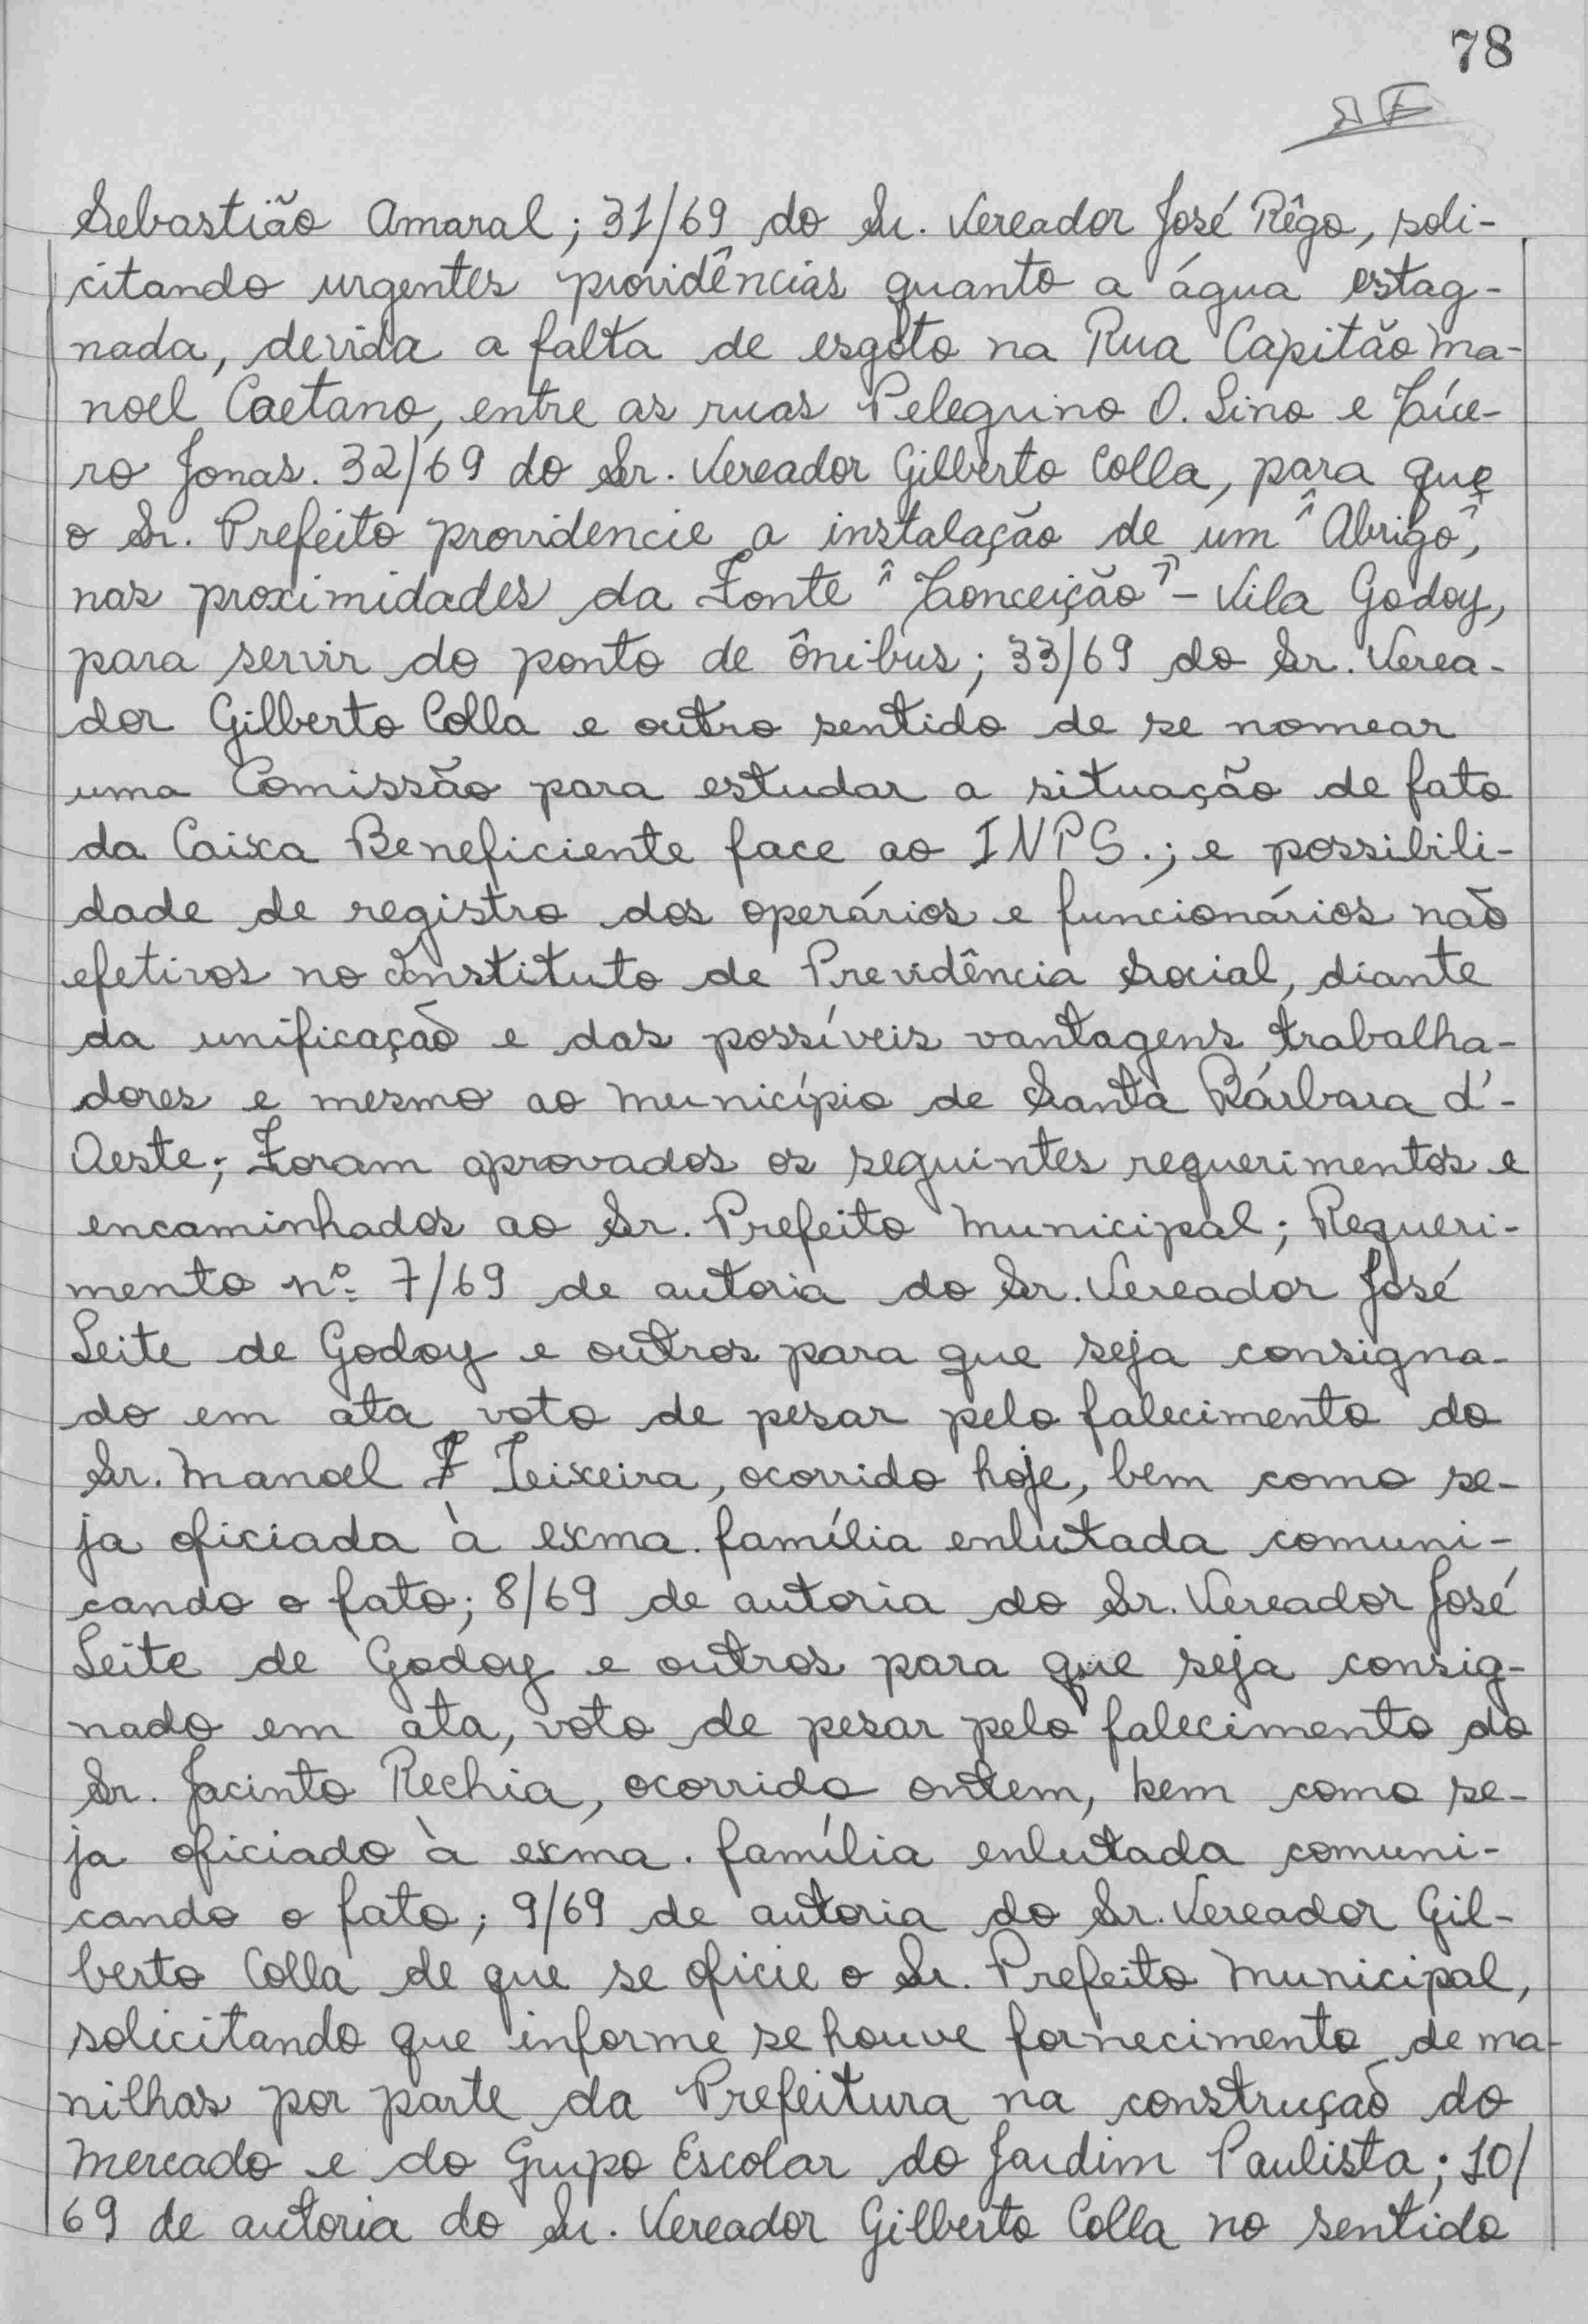 78
Sebastião Amaral; 31/69 do Sr. Vereador José Rêgo, soli-
citando urgentes providências quanto a água estag-
nada, devida a falta de esgôto na Rua Capitão Ma-
noel Caetano, entre as ruas Peleguino O. Lino e Cíce-
ro Jonas. 32/69 do Sr. Vereador Gilberto Colla, para que
o Sr. Prefeito providencie a instalação de um "Abrigo",
nas proximidades da Fonte "Conceição" - Vila Godoy,
para servir do ponto de ônibus; 33/69 do Sr. Verea-
dor Gilberto Colla e outro sentido de se nomear
uma Comissão para estudar a situação de fato
da Caixa Beneficiente face ao INPS.; e possibili-
dade de registro dos operários e funcionários não
efetivos no Instituto de Previdência Social, diante
da unificação e das possíveis vantagens trabalha-
dores e mesmo ao Município de Santa Bárbara d'-
Oeste; Foram aprovados os seguintes requerimentos e
encaminhados ao Sr. Prefeito Municipal; Requeri-
mento nº 7/69 de autoria do Sr. Vereador José
Leite de Godoy e outros para que seja consigna-
do em ata voto de pesar pelo falecimento do
Sr. Manoel F Teixeira, ocorrido hoje, bem como se-
ja oficiada à exma. família enlutada comuni-
cando o fato; 8/69 de autoria do Sr. Vereador José
Leite de Godoy e outros para que seja consig-
nado em ata, voto de pesar pelo falecimento do
Sr. Jacinto Rechia, ocorrido ontem, bem como se-
ja oficiado à exma. família enlutada comuni-
cando o fato; 9/69 de autoria do Sr. Vereador Gil-
berto Colla de que se oficie o Sr. Prefeito Municipal,
solicitando que informe se houve fornecimento de ma-
nilhas por parte da Prefeitura na construção do
Mercado e do Grupo Escolar do Jardim Paulista; 10/
69 de autoria do Sr. Vereador Gilberto Colla no sentido